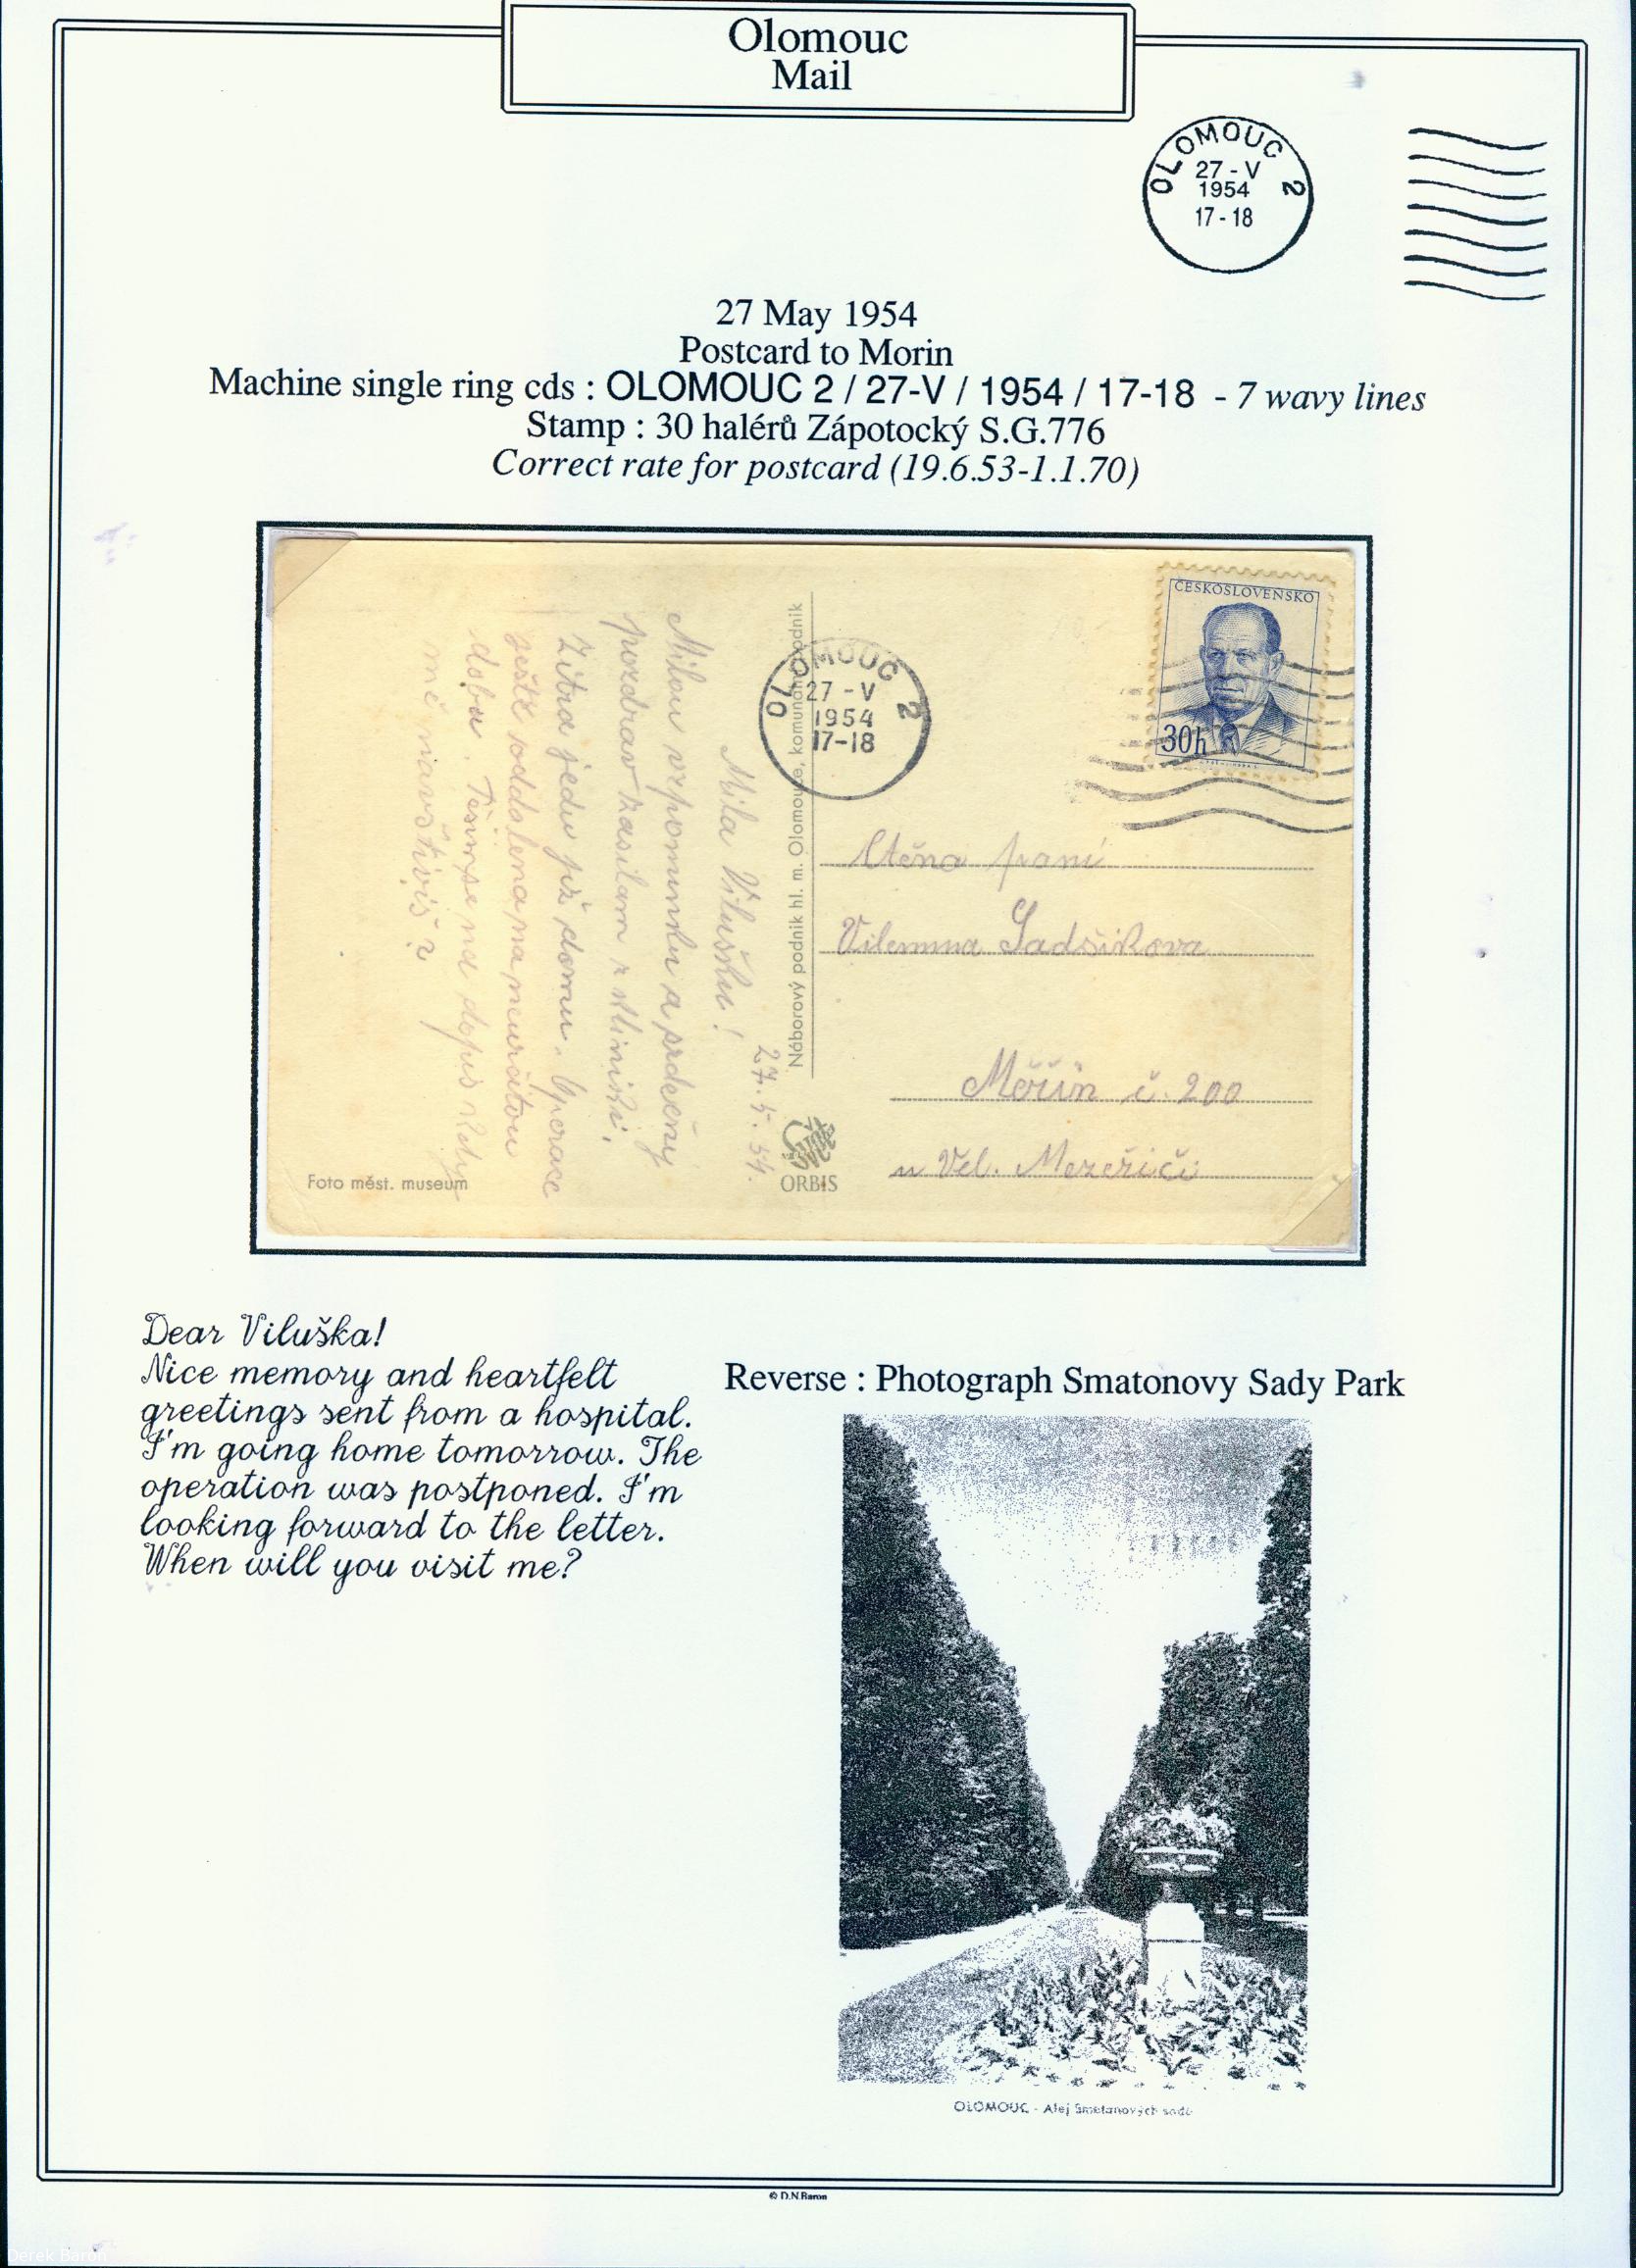 Olomouc
Mail
OLOMOUC 2
27 - V
1954
17 - 18
27 May 1954
Postcard to Morin
Machine single ring cds : OLOMOUC 2 / 27-V / 1954 / 17-18 - 7 wavy lines
Stamp : 30 halérů Zápotocký S.G.776
Correct rate for postcard (19.6.53-1.1.70)
ČESKOSLOVENSKO
30h
OLOMOUC 2
27 - V
1954
17-18
27. 5. 54.
Mila Viluško!
Milou vzpominku a srdečny
pozdrav zasilam z kliniki.
Zitra jedu již domu. Operace
oddalena na neurčitou
dobu. Těšim se na dopis Kdy
mě navštiviš?
Náborový podnik hl. m. Olomouce, komunální podnik
Foto měst. museum
ORBIS
Ctěna pani
Vilemina Sadsikova
Měřín č. 200
u Vel. Mezeřiči
Dear Viluška!
Nice memory and heartfelt
greetings sent from a hospital.
I'm going home tomorrow. The
operation was postponed. I'm
looking forward to the letter.
When will you visit me?
Reverse : Photograph Smatonovy Sady Park
OLOMOUC - Alej Smetanových sadů
© D.N.Baron
Derek Baron